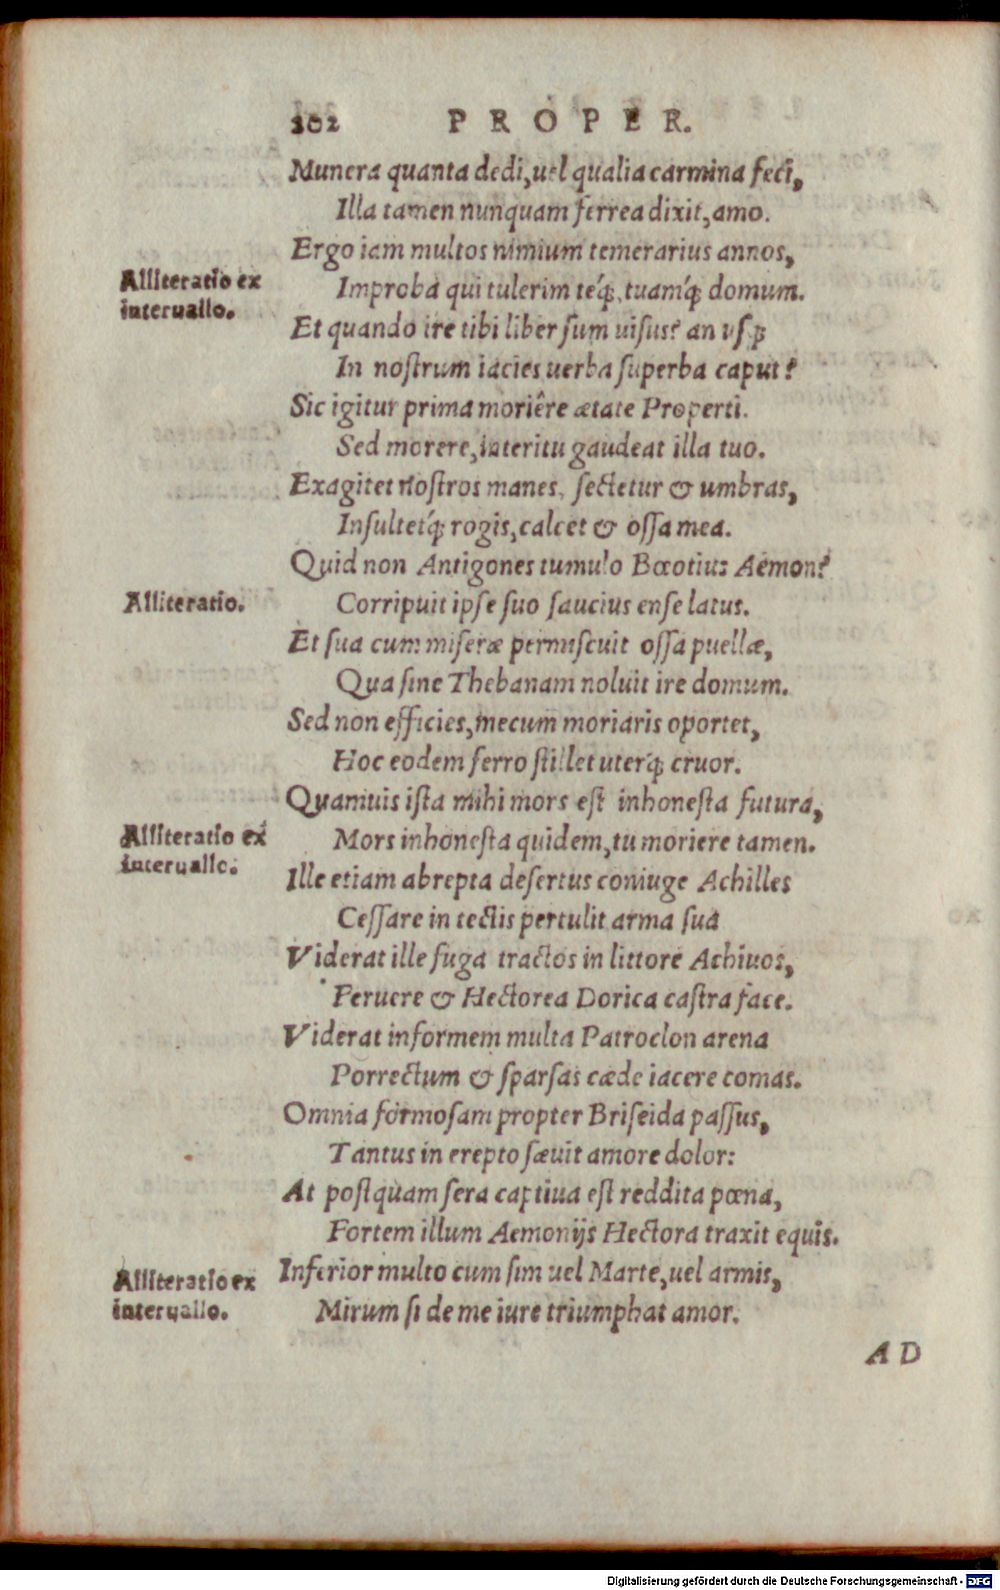 202 PROPER.
Munera quanta dedi, uel qualia carmina feci,
Illa tamen nunquam ferrea dixit, amo.
Ergo iam multos nimium temerarius annos,
Alliteratio ex
interuallo.
Improba qui tulerim teq́;, tuamq́; domum.
Et quando ire tibi liber sum uisus? an usq;
In nostrum iacies uerba superba caput?
Sic igitur prima moriêre ætate Properti.
Sed morere, interitu gaudeat illa tuo.
Exagitet nostros manes, sectetur & umbras,
Insultetq́; rogis, calcet & ossa mea.
Quid non Antigones tumulo Bœotius Aemon?
Alliteratio.
Corripuit ipse suo saucius ense latus.
Et sua cum miseræ permiscuit ossa puellæ,
Qua sine Thebanam noluit ire domum.
Sed non efficies, mecum moriaris oportet,
Hoc eodem ferro stillet uterq́; cruor.
Quamuis ista mihi mors est inhonesta futura,
Alliteratio ex
interuallo.
Mors inhonesta quidem, tu moriere tamen.
Ille etiam abrepta desertus coniuge Achilles
Cessare in tectis pertulit arma sua
Viderat ille fuga tractos in littore Achiuos,
Feruere & Hectorea Dorica castra face.
Viderat informem multa Patroclon arena
Porrectum & sparsas cæde iacere comas.
Omnia formosam propter Briseida passus,
Tantus in erepto sæuit amore dolor:
At postquam sera captiua est reddita pœna,
Fortem illum Aemonijs Hectora traxit equis.
Alliteratio ex
interuallo.
Inferior multo cum sim uel Marte, uel armis,
Mirum si de me iure triumphat amor.
AD
Digitalisierung gefördert durch die Deutsche Forschungsgemeinschaft - DFG